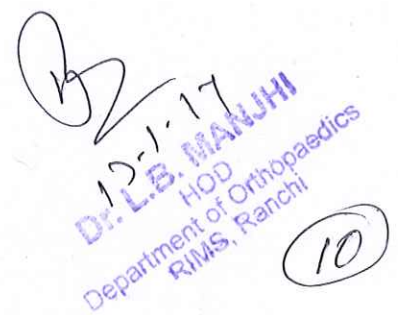 13-1-17
Dr. L.B. MANJHI
HOD
Department of Orthopaedics
RIMS, Ranchi
10